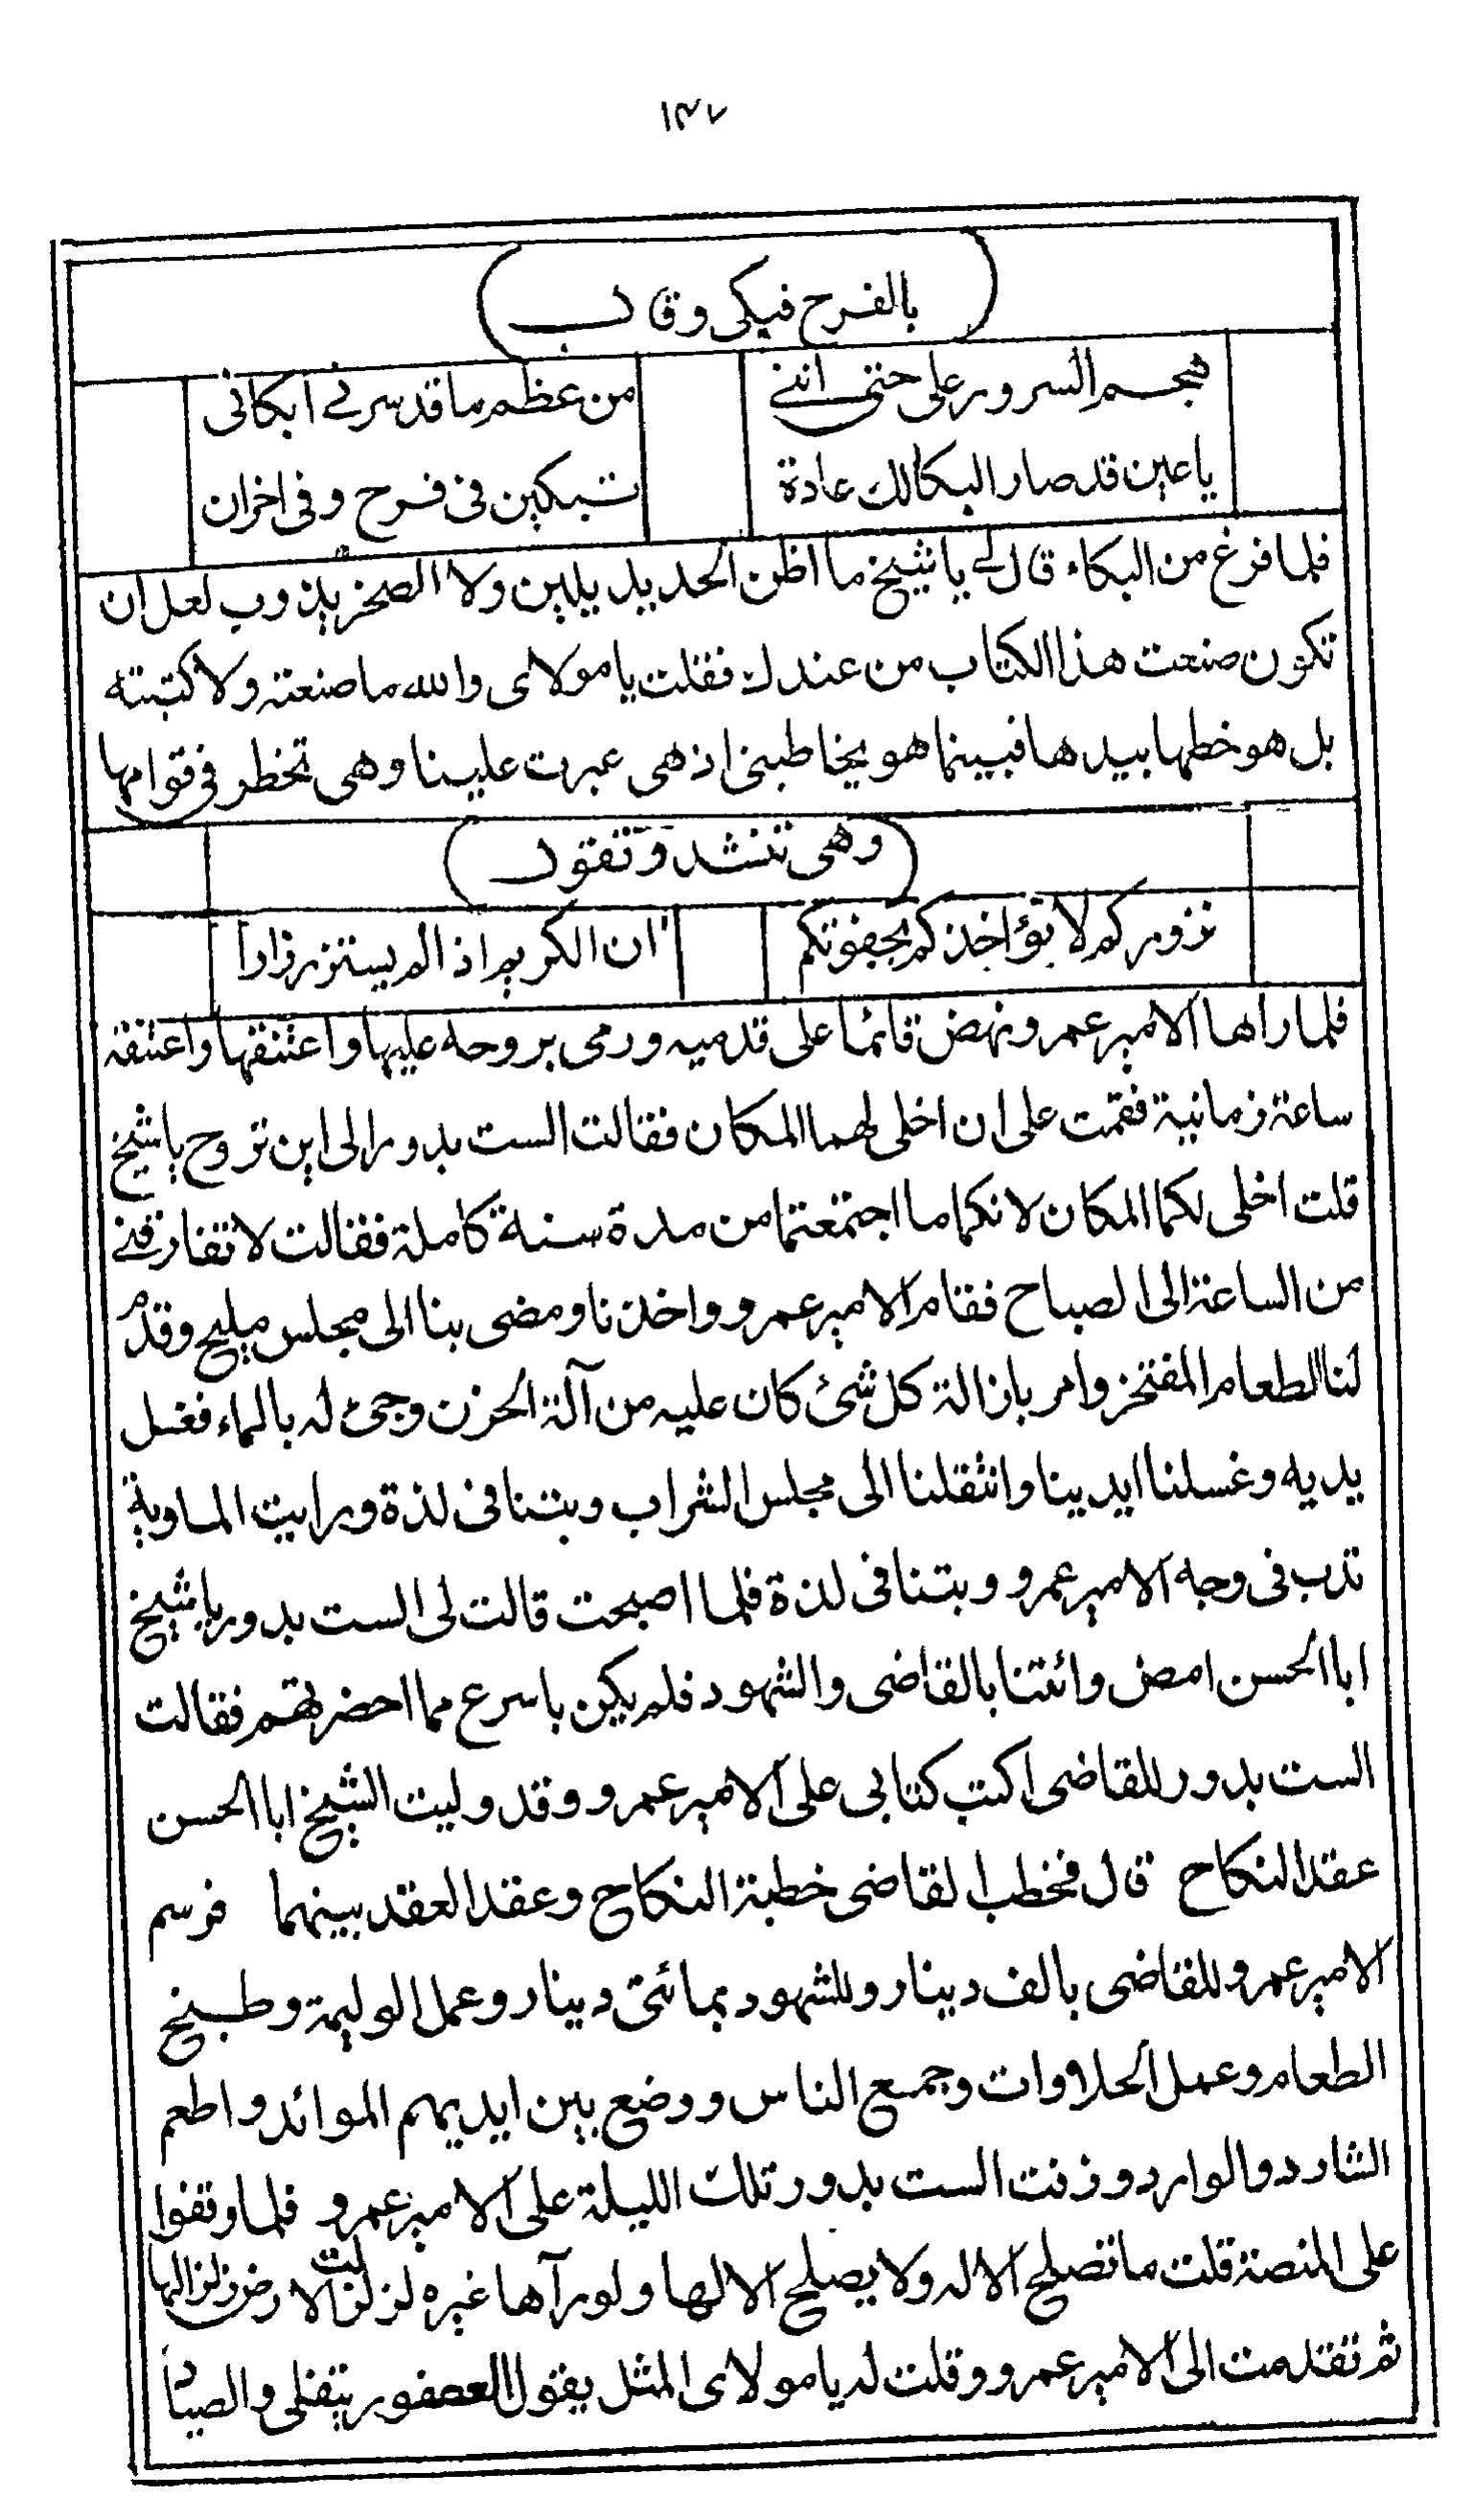 ١٣٧
(بالفرح فبكى وقال)
هجم السرور على حتى اننى من عظم ما قد سرنى ابكانى
يا عين قد صار البكا لك عادة تبكين فى فرح وفى احزان
فلما فرغ من البكاء قال لى يا شيخ ما اظن الحديد يلين ولا الصخر يذوب لعل ان
تكون صنعت هذا الكتاب من عندك فقلت يا مولاى والله ما صنعته ولا كتبته
بل هو خطها بيدها فبينما هو يخاطبنى اذ هى عبرت علينا وهى تخطر فى قوامها
(وهى تنشد وتقول)
نزوركم لا نؤاخذكم بجفوتكم ان الكريم اذا لم يستزر زارا
فلما راها الامير عمرو نهض قائما على قدميه ورمى بروحه عليها واعتنقها واعتنقته
ساعة زمانية فقمت على ان اخلى لهما المكان فقالت الست بدور الى اين تروح يا شيخ
قلت اخلى لكما المكان لانكما ما اجتمعتما من مدة سنة كاملة فقالت لا تفارقنى
من الساعة الى الصباح فقام الامير عمرو واخذنا ومضى بنا الى مجلس مليح وقدم
لنا الطعام المفتخر وامر بازالة كل شئ كان عليه من آلة الحزن وجئ له بالماء فغسل
يديه وغسلنا ايدينا وانتقلنا الى مجلس الشراب وبتنا فى لذة ورايت الماوية
تدب فى وجه الامير عمرو وبتنا فى لذة فلما اصبحت قالت لى الست بدور يا شيخ
ابا الحسن امض وائتنا بالقاضى والشهود فلم يكن باسرع مما احضرتهم فقالت
الست بدور للقاضى اكتب كتابى على الامير عمرو وقد وليت الشيخ ابا الحسن
عقد النكاح قال فخطب القاضى خطبة النكاح وعقد العقد بينهما فرسم
الامير عمرو للقاضى بالف دينار وللشهود بمائتى دينار وعمل الوليمة وطبخ
الطعام وعمل الحلاوات وجمع الناس ووضع بين ايديهم الموائد واطعم
الشارد والوارد وزفت الست بدور تلك الليلة على الامير عمرو فلما وقفوا
على المنصة قلت ما تصلح الا له ولا يصلح الا لها ولو رآها غيره لزلزلت الارض زلزالها
ثم تقدمت الى الامير عمرو وقلت له يا مولاى المثل يقول العصفور يتفلى والصياد